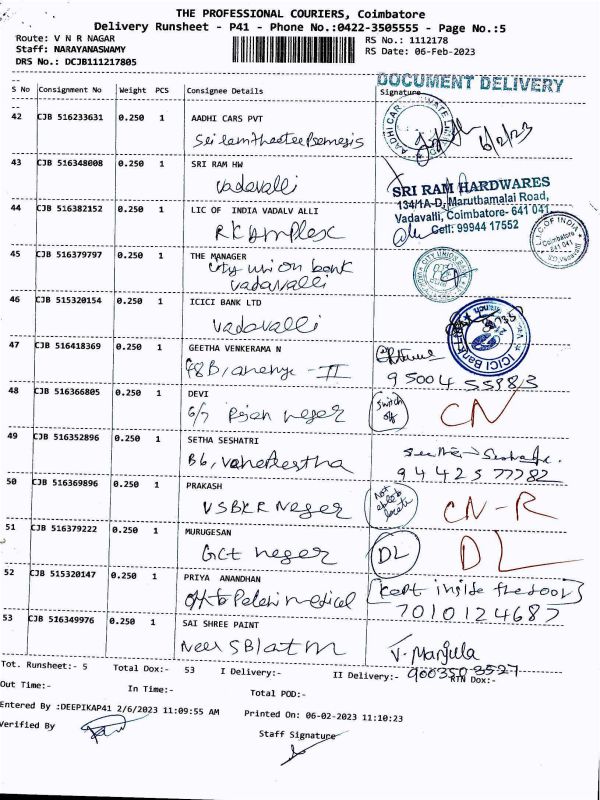 THE PROFESSIONAL COURIERS, Coimbatore
Delivery Runsheet - P41 - Phone No.:0422-3505555 - Page No.:5
Route: V N R NAGAR
RS No.: 1112178
Staff: NARAYANASWAMY
RS Date: 06-Feb-2023
DRS No.: DCJB111217805
DOCUMENT DELIVERY
S No Consignment No Weight PCS Consignee Details Signature
42 CJB 516233631 0.250 1 AADHI CARS PVT
6/2/23
43 CJB 516348008 0.250 1 SRI RAM HW
vadavalli
SRI RAM HARDWARES
134/1A-D, Maruthamalai Road,
Vadavalli, Coimbatore- 641 041
Cell: 99944 17552
44 CJB 516382152 0.250 1 LIC OF INDIA VADALV ALLI
RK complex
L.I.C. OF INDIA
Coimbatore
641 041
45 CJB 516379797 0.250 1 THE MANAGER
city union bank
vadavalli
CITY UNION BANK
46 CJB 515320154 0.250 1 ICICI BANK LTD
vadavalli
ICICI Bank
47 CJB 516418369 0.250 1 GEETHA VENKERAMA N
48B, II
95004 55983
48 CJB 516366805 0.250 1 DEVI
6/7 Rajan neger
Switch off
CN
49 CJB 516352896 0.250 1 SETHA SESHATRI
B6,
94425 77782
50 CJB 516369896 0.250 1 PRAKASH
VSBKR Neger
Not
CN-R
51 CJB 516379222 0.250 1 MURUGESAN
GCT neger
DL
DL
52 CJB 515320147 0.250 1 PRIYA ANANDHAN
medical
kept inside the door
7010124687
53 CJB 516349976 0.250 1 SAI SHREE PAINT
Neer SBI atm
V. Manjula
900350 3527
Tot. Runsheet:- 5 Total Dox:- 53 I Delivery:- II Delivery:- RTN Dox:-
Out Time:- In Time:- Total POD:-
Entered By :DEEPIKAP41 2/6/2023 11:09:55 AM Printed On: 06-02-2023 11:10:23
Verified By Staff Signature